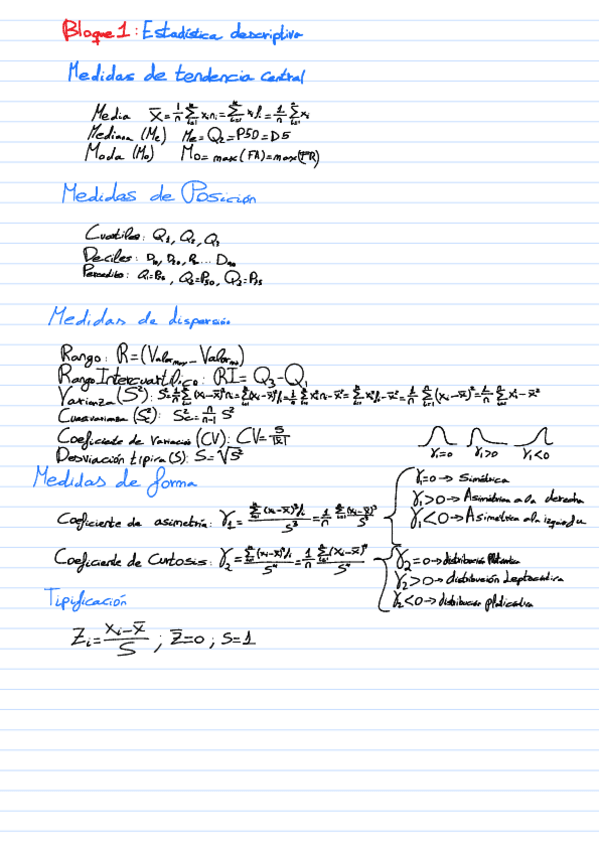 Bloque 1: Estadística descriptiva
Medidas de tendencia central
Media x̄ = 1/n Σ xᵢnᵢ = Σ xᵢfᵢ = 1/n Σ xᵢ
Mediana (Me) Me = Q₂ = P50 = D5
Moda (Mo) Mo = max(FA) = max(FR)
Medidas de Posición
Cuartiles: Q₁, Q₂, Q₃
Deciles:
Q₂=P₅₀, Q₂=P₇₅
Medidas de dispersión
Rango: R = (Valor max - Valor min)
Rango Intercuartílico: RI = Q₃ - Q₁
Varianza (S²): S² = 1/n Σ (xᵢ-x̄)²nᵢ = Σ (xᵢ-x̄)²fᵢ = 1/n Σ xᵢ²nᵢ - x̄² = Σ xᵢ²fᵢ - x̄² = 1/n Σ (xᵢ-x̄)² = 1/n Σ xᵢ² - x̄²
Sc² = n/n-1 S²
Coeficiente de Variación (CV): CV = S/|x̄|
Desviación típica (S): S = √S²
γ₁=0 γ₁>0 γ₁<0
Medidas de forma
γ₁=0 → Simétrica
Coeficiente de asimetría: γ₁ = Σ (xᵢ-x̄)³fᵢ / S³ = 1/n Σ (xᵢ-x̄)³ / S³
γ₁>0 → Asimétrica a la derecha
γ₁<0 → Asimetrica a la izquierda
Coeficiente de Curtosis: γ₂ = Σ (xᵢ-x̄)⁴fᵢ / S⁴ = 1/n Σ (xᵢ-x̄)⁴ / S⁴
γ₂=0 → distribución
γ₂>0 → distribución Leptocúrtica
γ₂<0 → distribución platicúrtica
Tipificación
Zᵢ = xᵢ-x̄ / S ; z̄=0 ; S=1